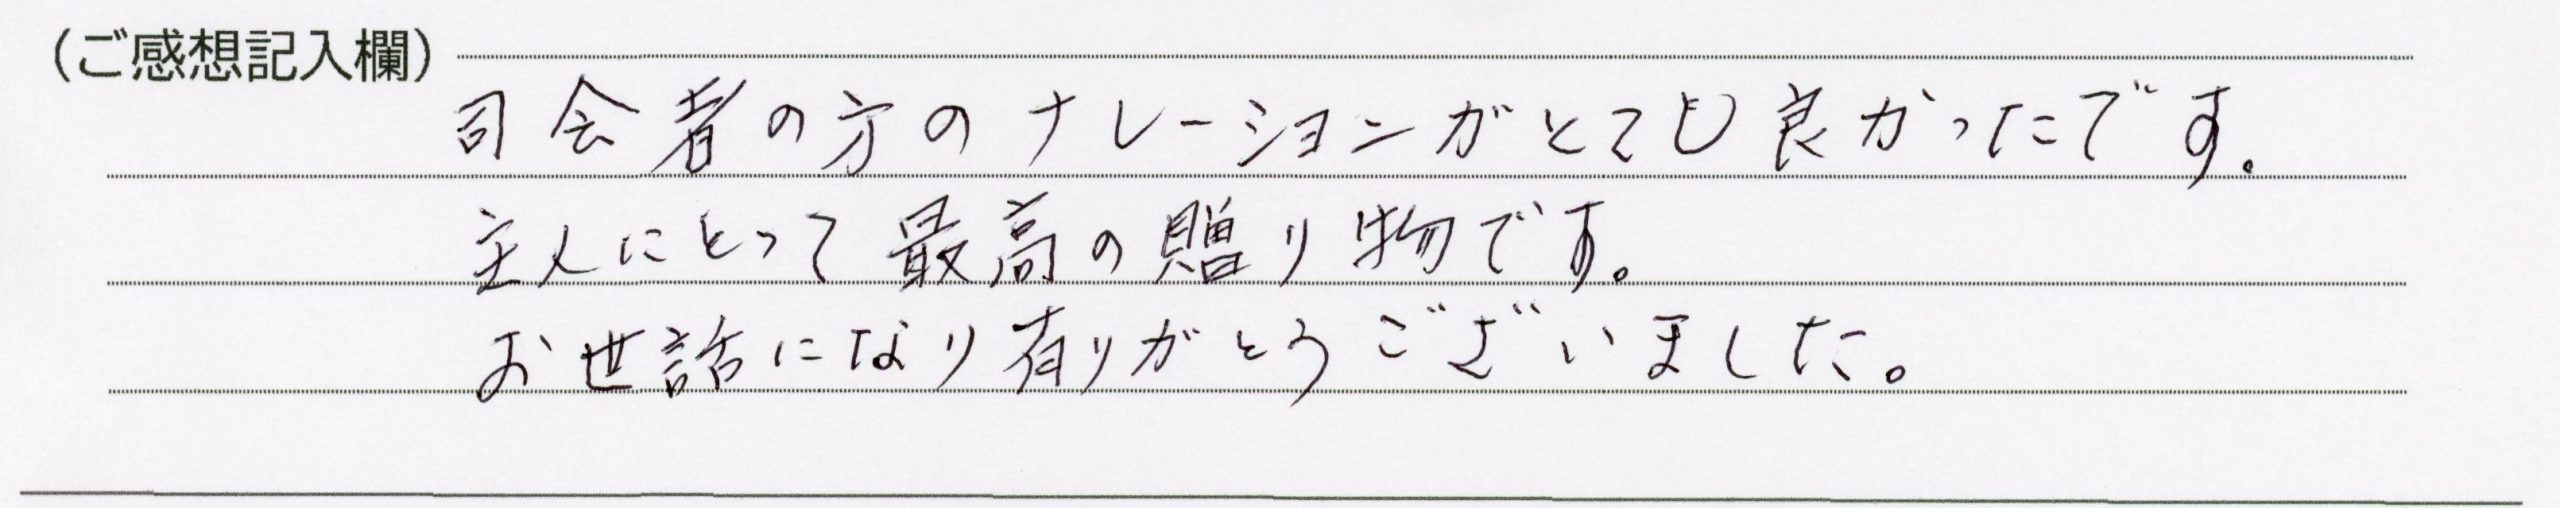 （ご感想記入欄）
司会者の方のナレーションがとても良かったです。
主人にとって最高の贈り物です。
お世話になり有りがとうございました。